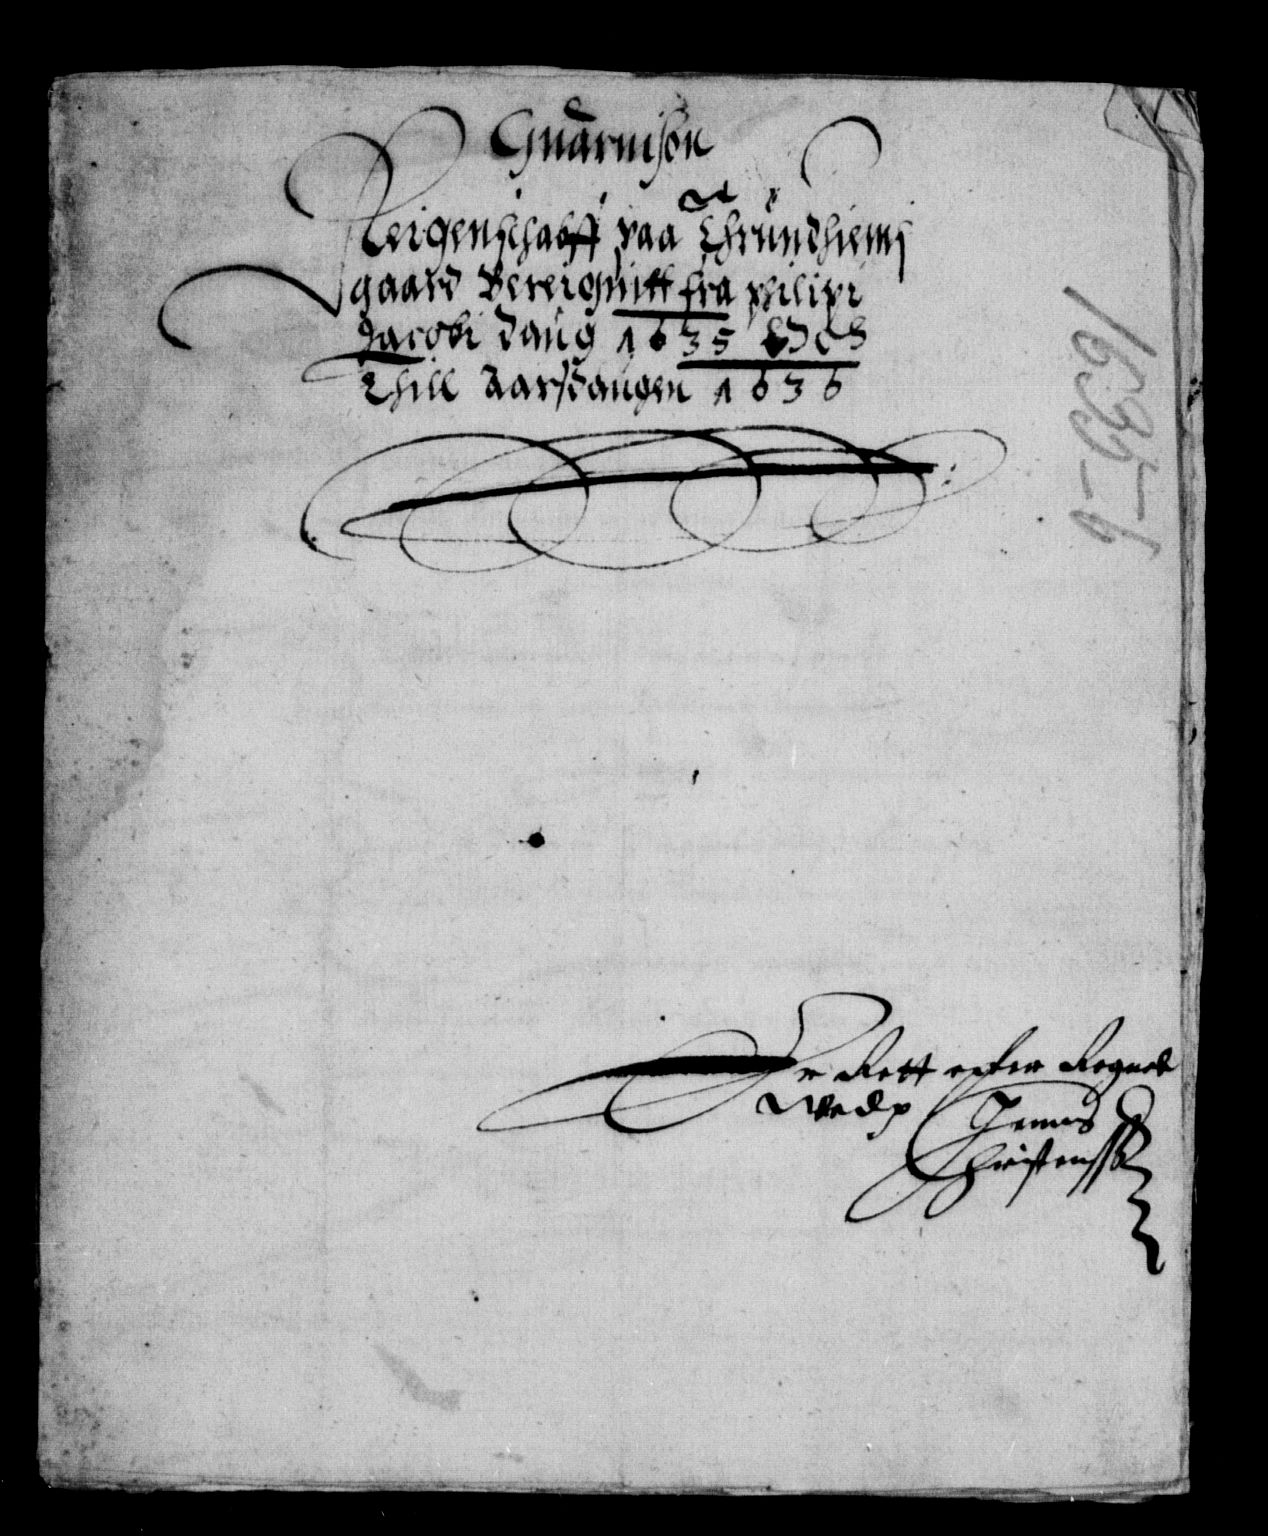 Guarnison
Reigenschafft paa Thrundhiems
gaard Bereignitt fra philipi
Jacobi daug 1635 och
Thill Aarsdaugen 1636
1635-
9-6
Er Rett epter Regned
Jennes
Christenssøn